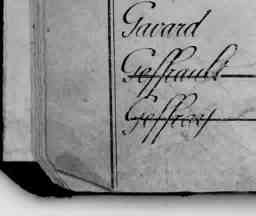 Gavard
Geffrault
Geffrar